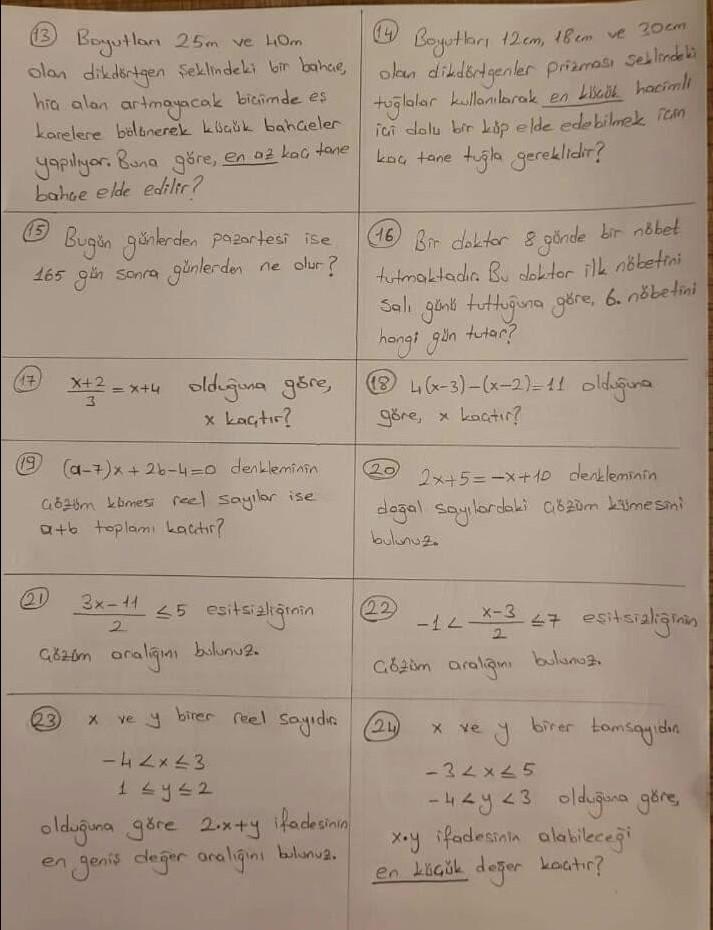 13 Boyutları 25m ve 40m
olan dikdörtgen şeklindeki bir bahçe,
hiç alan artmayacak biçimde eş
karelere bölünerek küçük bahçeler
yapılıyor. Buna göre, en az kaç tane
bahçe elde edilir?
14 Boyutları 12cm, 18cm ve 30cm
olan dikdörtgenler prizması şeklindeki
tuğlalar kullanılarak en küçük hacimli
içi dolu bir küp elde edebilmek için
kaç tane tuğla gereklidir?
15 Bugün günlerden pazartesi ise
165 gün sonra günlerden ne olur?
16 Bir doktor 8 günde bir nöbet
tutmaktadır. Bu doktor ilk nöbetini
Salı günü tuttuğuna göre, 6. nöbetini
hangi gün tutar?
17 (x+2)/3 = x+4 olduğuna göre,
x kaçtır?
18 4(x-3)-(x-2)=11 olduğuna
göre, x kaçtır?
19 (a-7)x+2b-4=0 denkleminin
çözüm kümesi reel sayılar ise
a+b toplamı kaçtır?
20 2x+5=-x+10 denkleminin
doğal sayılardaki çözüm kümesini
bulunuz.
21 (3x-11)/2 ≤ 5 eşitsizliğinin
çözüm aralığını bulunuz.
22 -1 < (x-3)/2 ≤ 7 eşitsizliğinin
çözüm aralığını bulunuz.
23 x ve y birer reel sayıdır.
-4 < x ≤ 3
1 ≤ y ≤ 2
olduğuna göre 2.x+y ifadesinin
en geniş değer aralığını bulunuz.
24 x ve y birer tamsayıdır.
-3 < x ≤ 5
-4 < y < 3 olduğuna göre,
x.y ifadesinin alabileceği
en küçük değer kaçtır?